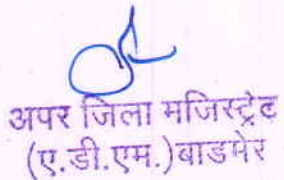 अपर जिला मजिस्ट्रेट
(ए.डी.एम.)बाडमेर